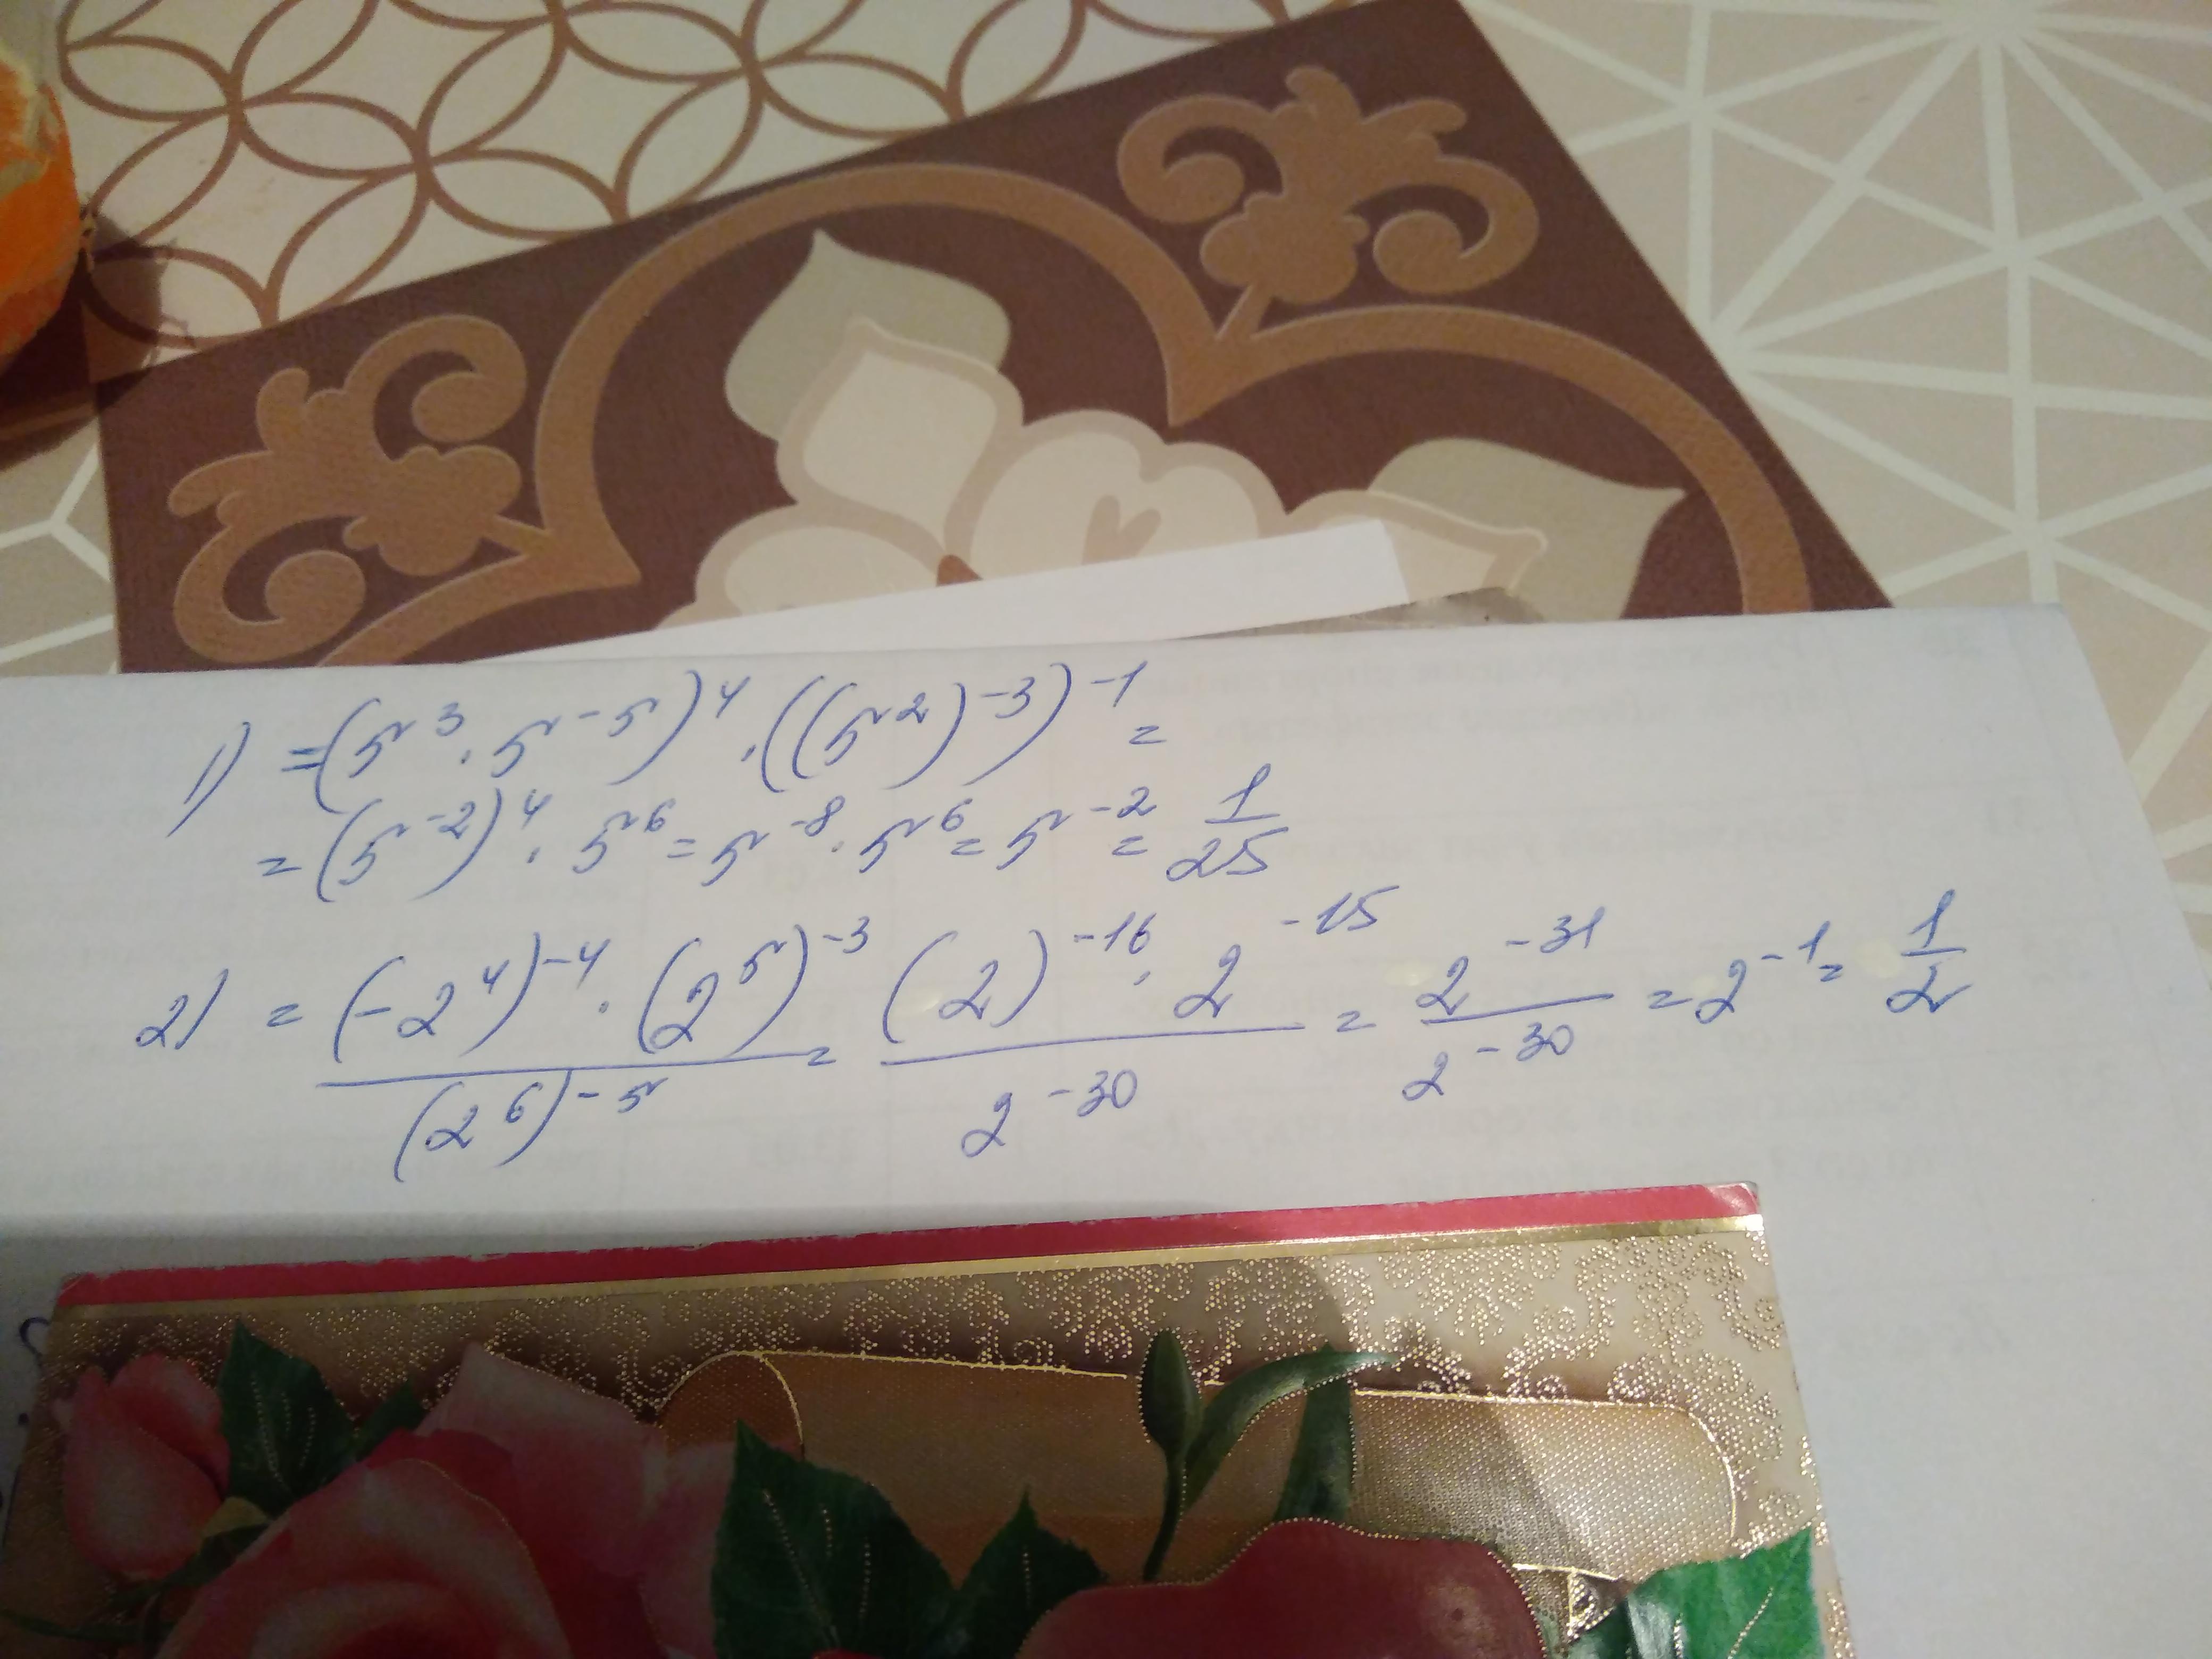 1) =(5^3 · 5^-5)^4 · ((5^2)^-3)^-1 =
= (5^-2)^4 · 5^6 = 5^-8 · 5^6 = 5^-2 = 1/25
2) = ((-2^4)^-4 · (2^5)^-3)/((2^6)^-5) = ((2)^-16 · 2^-15)/(2^-30) = (2^-31)/(2^-30) = 2^-1 = 1/2